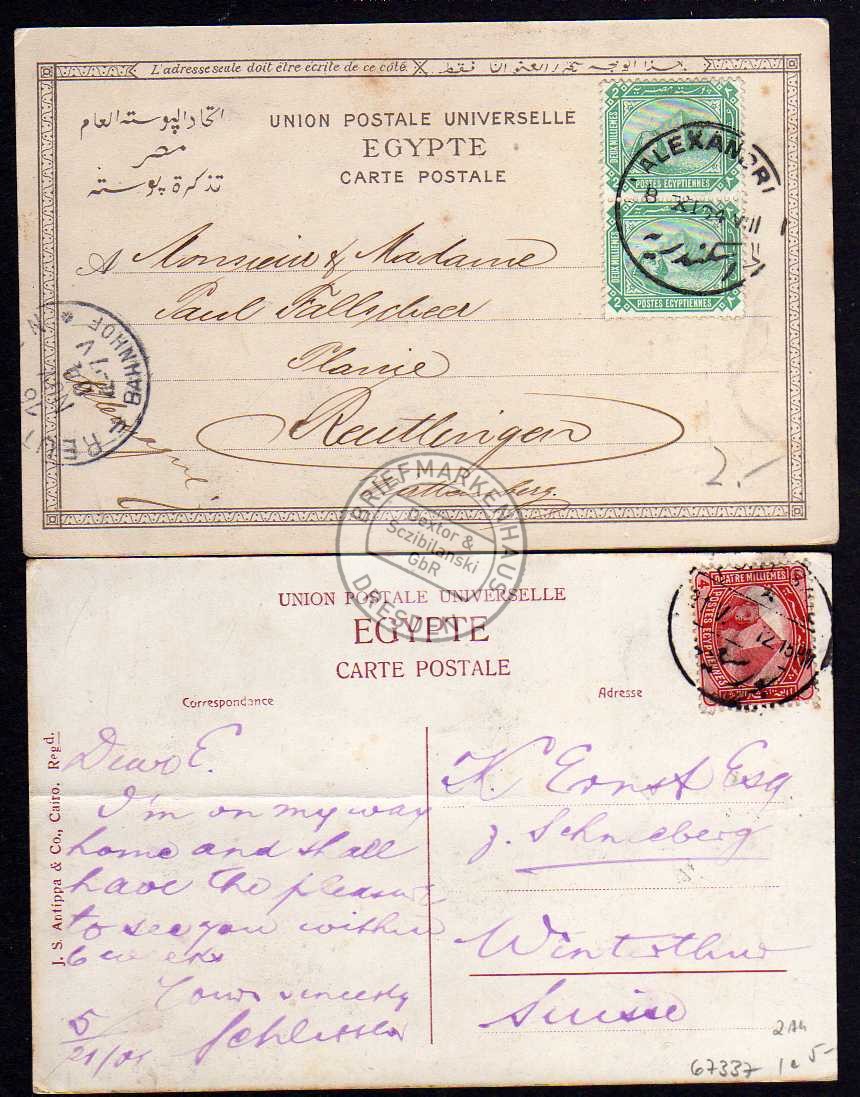 L'adresse seule doit être écrite de ce côté.
اتحاد البوسته العام
مصر
تذكرة بوسته
UNION POSTALE UNIVERSELLE
EGYPTE
CARTE POSTALE
2
DEUX MILLIEMES
POSTES EGYPTIENNES
DEUX MILLIEMES
2 POSTES EGYPTIENNES
ALEXANDRI
8 XI 04 VIII
A Monsieur & Madame
Paul Fallscheer
Planie
Reutlingen
BAHNHOF
REUTL
NOV
2.-
BRIEFMARKENHAUS
Dextor &
Sczibilanski
GbR
DRESDEN
UNION POSTALE UNIVERSELLE
EGYPTE
CARTE POSTALE
Correspondance
Adresse
4
QUATRE MILLIEMES
POSTES EGYPTIENNES
J. S. Antippa & Co., Cairo. Regd.
Dear E.
I'm on my way
home and shall
have the pleasure
to see you within
6 weeks
Yours sincerely
5/21/0
K. Ernst Esq
z. Schneeberg
Winterthur
Suisse
67337
5-